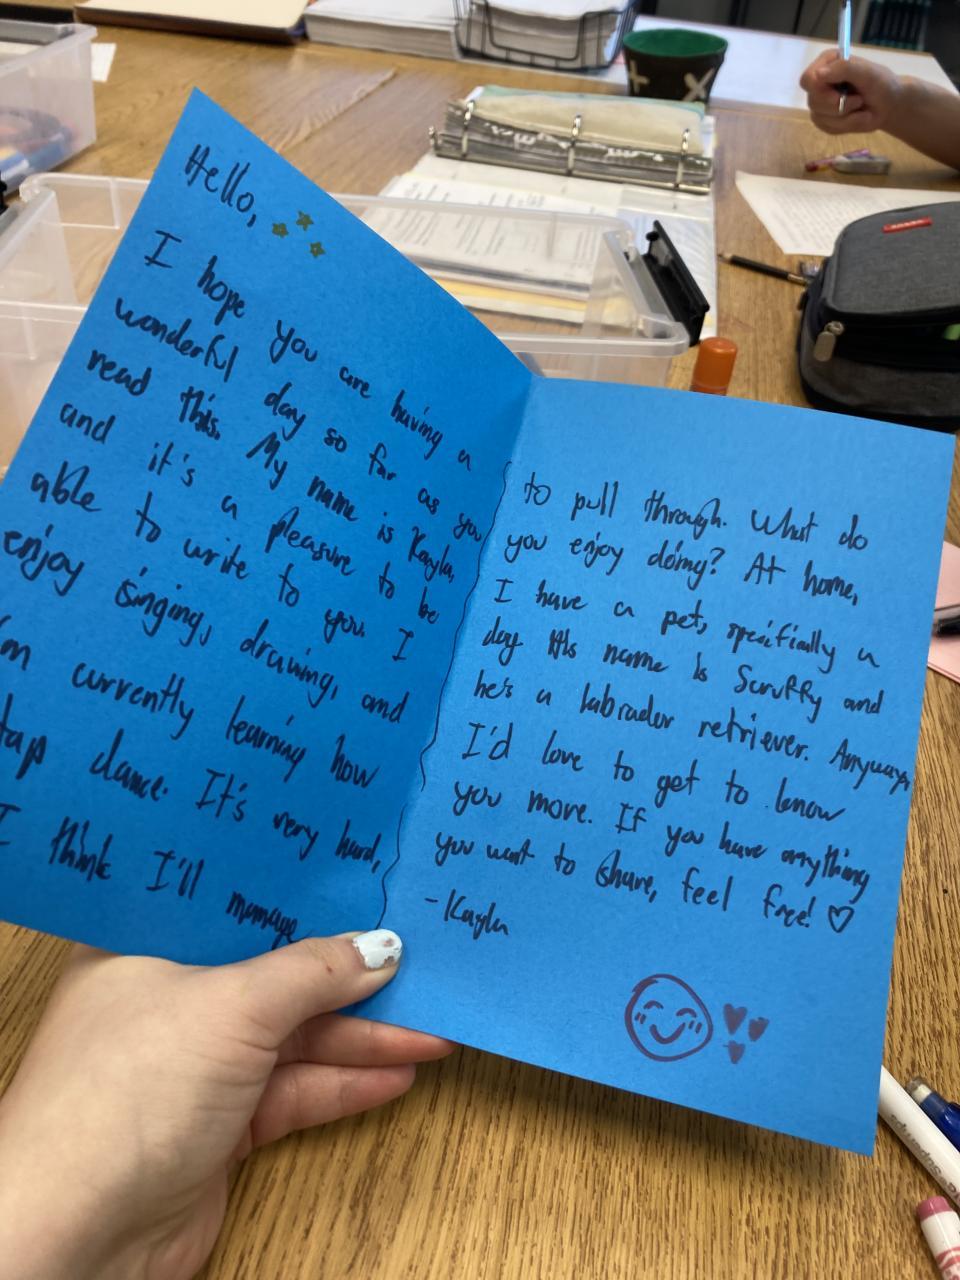 Hello,
I hope you are having a
wonderful day so far as you
read this. My name is Kayla,
and it's a pleasure to be
able to write to you. I
enjoy singing, drawing, and
I'm currently learning how
tap dance. It's very hard,
I think I'll manage
to pull through. What do
you enjoy doing? At home,
I have a pet, specifially a
dog. His name is Scruffy and
he's a labrador retriever. Anyways,
I'd love to get to know
you more. If you have anything
you want to share, feel free! ♡
-Kayla